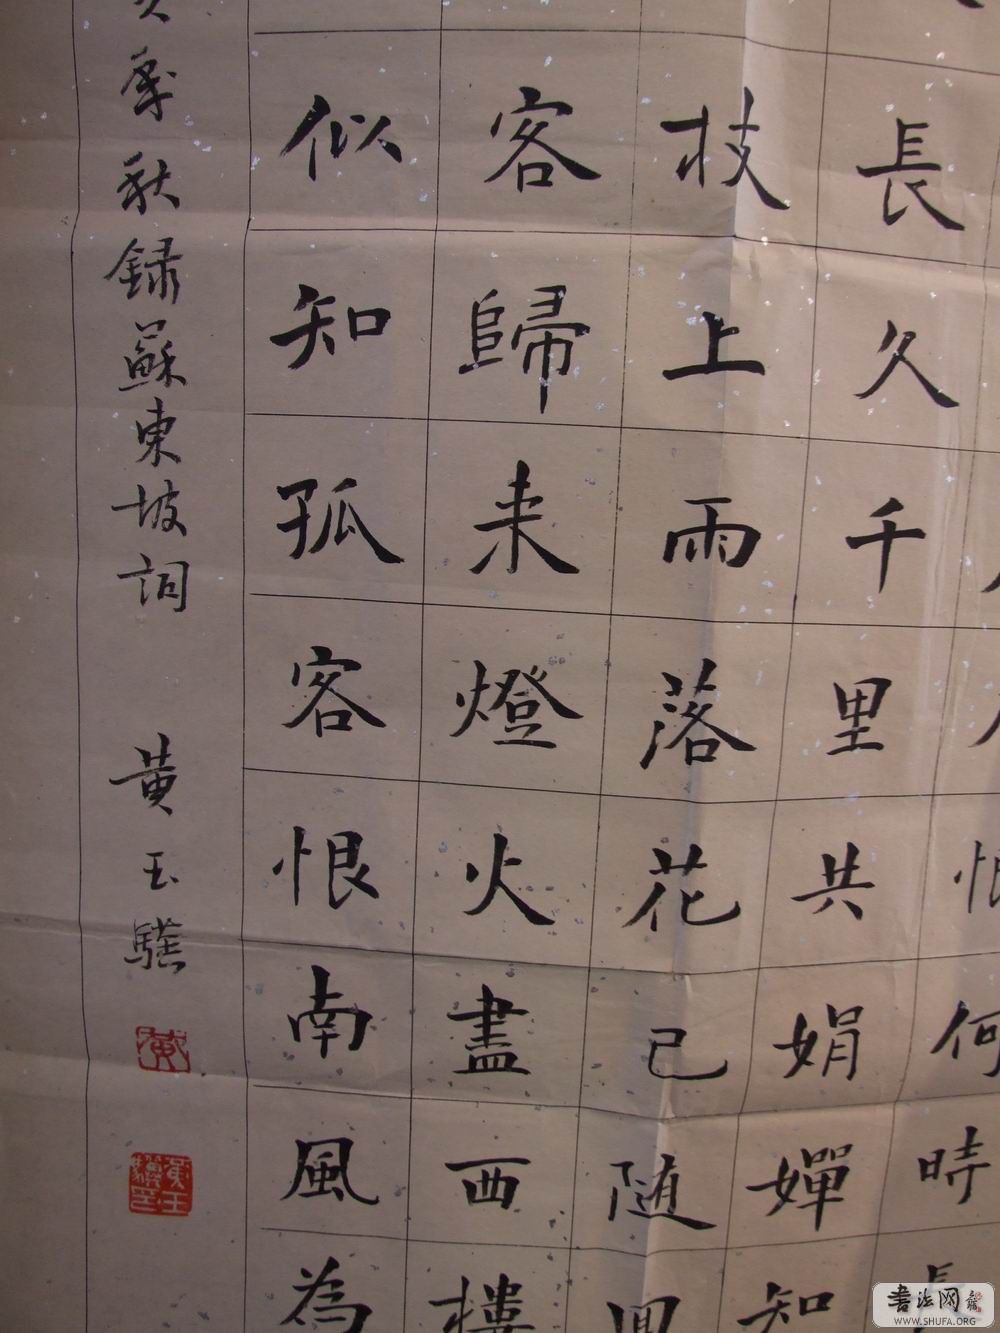 恨何時長
長久千里共娟嬋知
枝上雨落花已随
客歸来燈火盡西樓
似知孤客恨南風為
季秋録蘇東坡詞 黄玉
黄
書法网
WWW.SHUFA.ORG